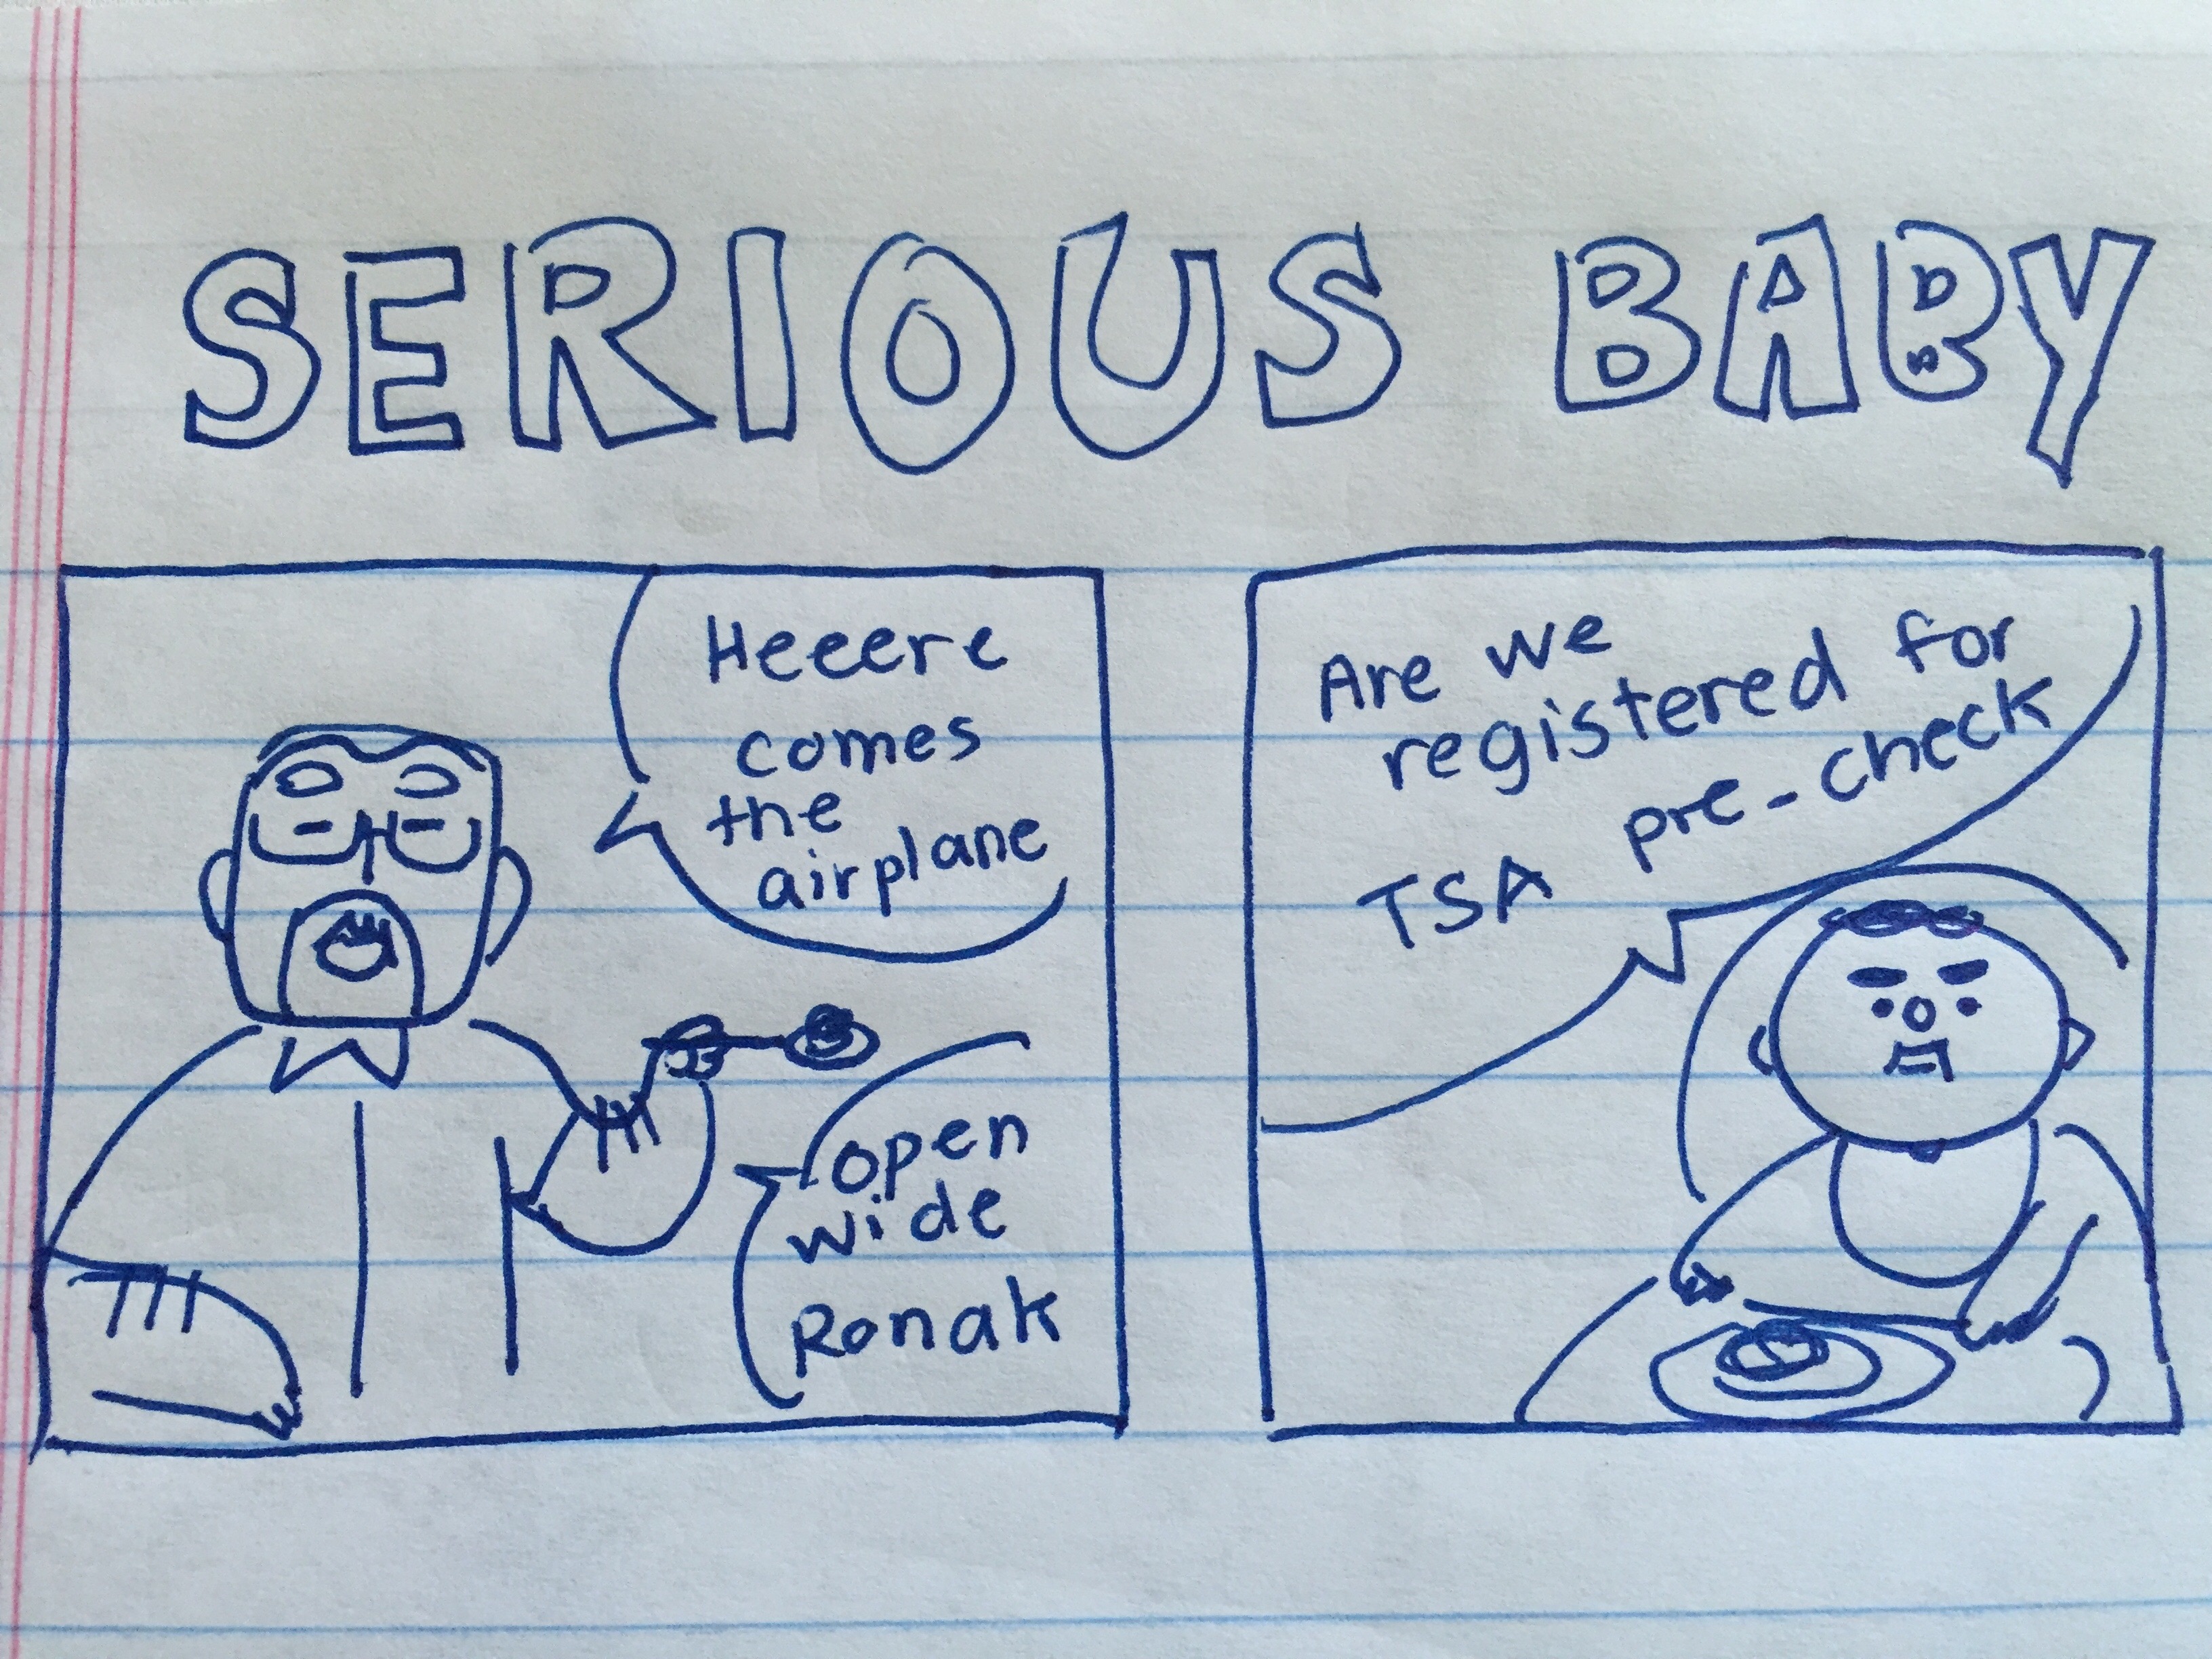 SERIOUS BABY
Heeere
comes
the
airplane
open
wide
Ronak
Are we
registered for
TSA pre-check